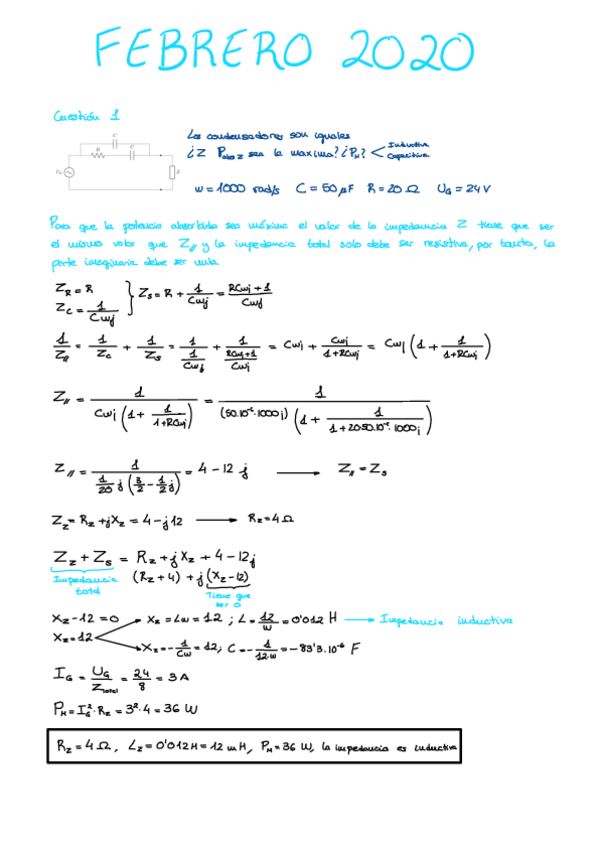 FEBRERO 2020
Cuestión 1
Los condensadores son iguales
¿Z Pabs z sea la maxima? ¿PM? < Inductiva
Capacitiva
C
R
C
Z
w = 1000 rad/s C = 50 μF R = 20 Ω UG = 24 V
Para que la potencia absorbida sea máxima el valor de la impedancia Z tiene que ser
el mismo valor que Z// y la impedancia total solo debe ser resistiva, por tanto, la
parte imaginaria debe ser nula.
ZR = R
ZC = 1/Cωj } ZS = R + 1/Cωj = RCωj + 1/Cωj
1/Z// = 1/ZC + 1/ZS = 1/(1/Cωj) + 1/((RCωj+1)/Cωj) = Cωj + Cωj/(1+RCωj) = Cωj (1 + 1/(1+RCωj))
Z// = 1/(Cωj (1 + 1/(1+RCωj))) = 1/((50·10⁻⁶·1000j) (1 + 1/(1+20·50·10⁻⁶·1000j)))
Z// = 1/(1/20 j (3/2 - 1/2 j)) = 4 - 12 j → Z// = ZS
Zz = Rz + jXz = 4 - j12 → Rz = 4 Ω
Zz + ZS = Rz + jXz + 4 - 12j
Impedancia total
(Rz + 4) + j(Xz - 12)
Tiene que
ser 0
Xz - 12 = 0 → Xz = Lω = 12 ; L = 12/ω = 0'012 H → Impedancia inductiva
Xz = 12 → Xz = - 1/Cω = 12; C = - 1/12·ω = - 83'3·10⁻⁶ F
IG = UG/Ztotal = 24/8 = 3 A
PM = IG²·Rz = 3²·4 = 36 W
Rz = 4 Ω, Lz = 0'012 H = 12 mH, PM = 36 W, la impedancia es inductiva